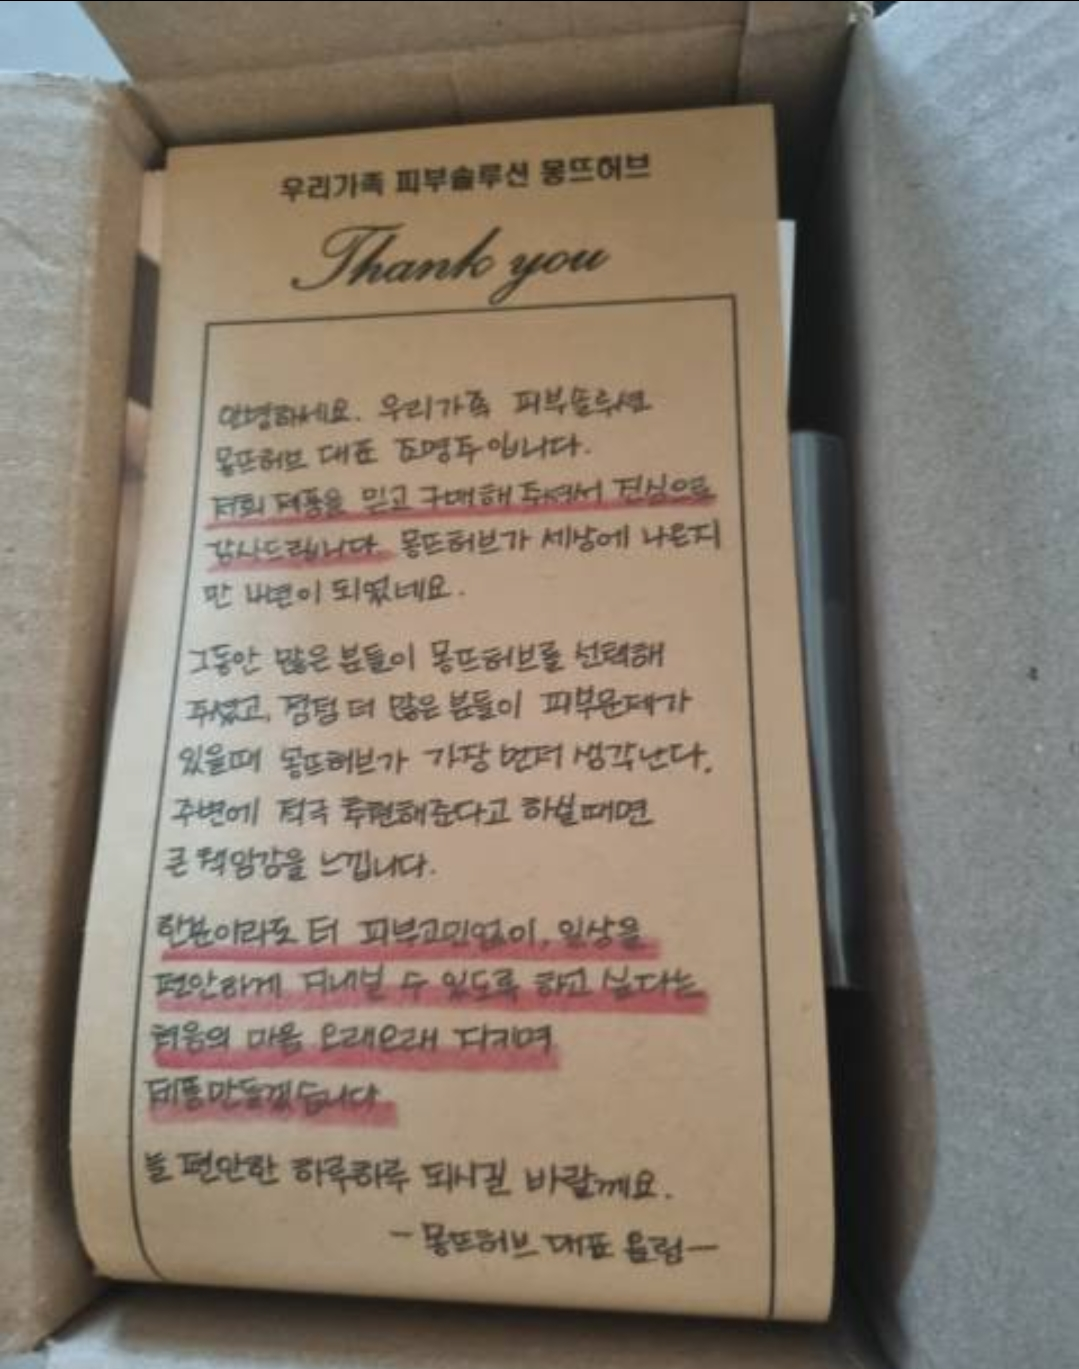 우리가족 피부솔루션 몽뜨허브
Thank you
안녕하세요. 우리가족 피부솔루션
몽뜨허브 대표 조명주입니다.
저희 제품을 믿고 구매해 주셔서 진심으로
감사드립니다. 몽뜨허브가 세상에 나온지
만 4년이 되었네요.
그동안 많은 분들이 몽뜨허브를 선택해
주셨고, 점점 더 많은 분들이 피부문제가
있을때 몽뜨허브가 가장 먼저 생각난다.
주변에 적극 추천해준다고 하실때면
큰 책임감을 느낍니다.
한분이라도 더 피부고민없이, 일상을
편안하게 지내실 수 있도록 하고 싶다는
처음의 마음 오래오래 지키며
제품만들겠습니다
늘 편안한 하루하루 되시길 바랄께요.
-몽뜨허브 대표 드림-